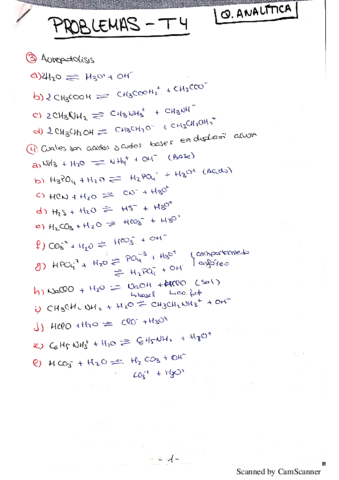 PROBLEMAS - T4
Q. ANALÍTICA
③ Autoprotólisis
a) 2H₂O ⇌ H₃O⁺ + OH⁻
b) 2 CH₃COOH ⇌ CH₃COOH₂⁺ + CH₃COO⁻
c) 2CH₃NH₂ ⇌ CH₃NH₃⁺ + CH₃NH⁻
d) 2 CH₃CH₂OH ⇌ CH₃CH₂O⁻ + CH₃CH₂OH₂⁺
④ Cuales son acidos y cuales bases en disolución acuosa
a) NH₃ + H₂O ⇌ NH₄⁺ + OH⁻ (Base)
b) H₃PO₄ + H₂O ⇌ H₂PO₄⁻ + H₃O⁺ (Acido)
c) HCN + H₂O ⇌ CN⁻ + H₃O⁺
d) H₂S + H₂O ⇌ HS⁻ + H₃O⁺
e) H₂CO₃ + H₂O ⇌ HCO₃⁻ + H₃O⁺
f) CO₃⁻² + H₂O ⇌ HCO₃⁻ + OH⁻
g) HPO₄⁻² + H₂O ⇌ PO₄⁻³ + H₃O⁺ comportamiento
⇌ H₂PO₄⁻ + OH⁻ anfótero
h) NaClO + H₂O ⇌ NaOH + HClO (Sal)
i) CH₃CH₂NH₂ + H₂O ⇌ CH₃CH₂NH₃⁺ + OH⁻
j) HClO + H₂O ⇌ ClO⁻ + H₃O⁺
k) C₆H₅NH₃⁺ + H₂O ⇌ C₆H₅NH₂ + H₃O⁺
l) HCO₃⁻ + H₂O ⇌ H₂CO₃ + OH⁻
CO₃⁻² + H₃O⁺
-1-
Scanned by CamScanner